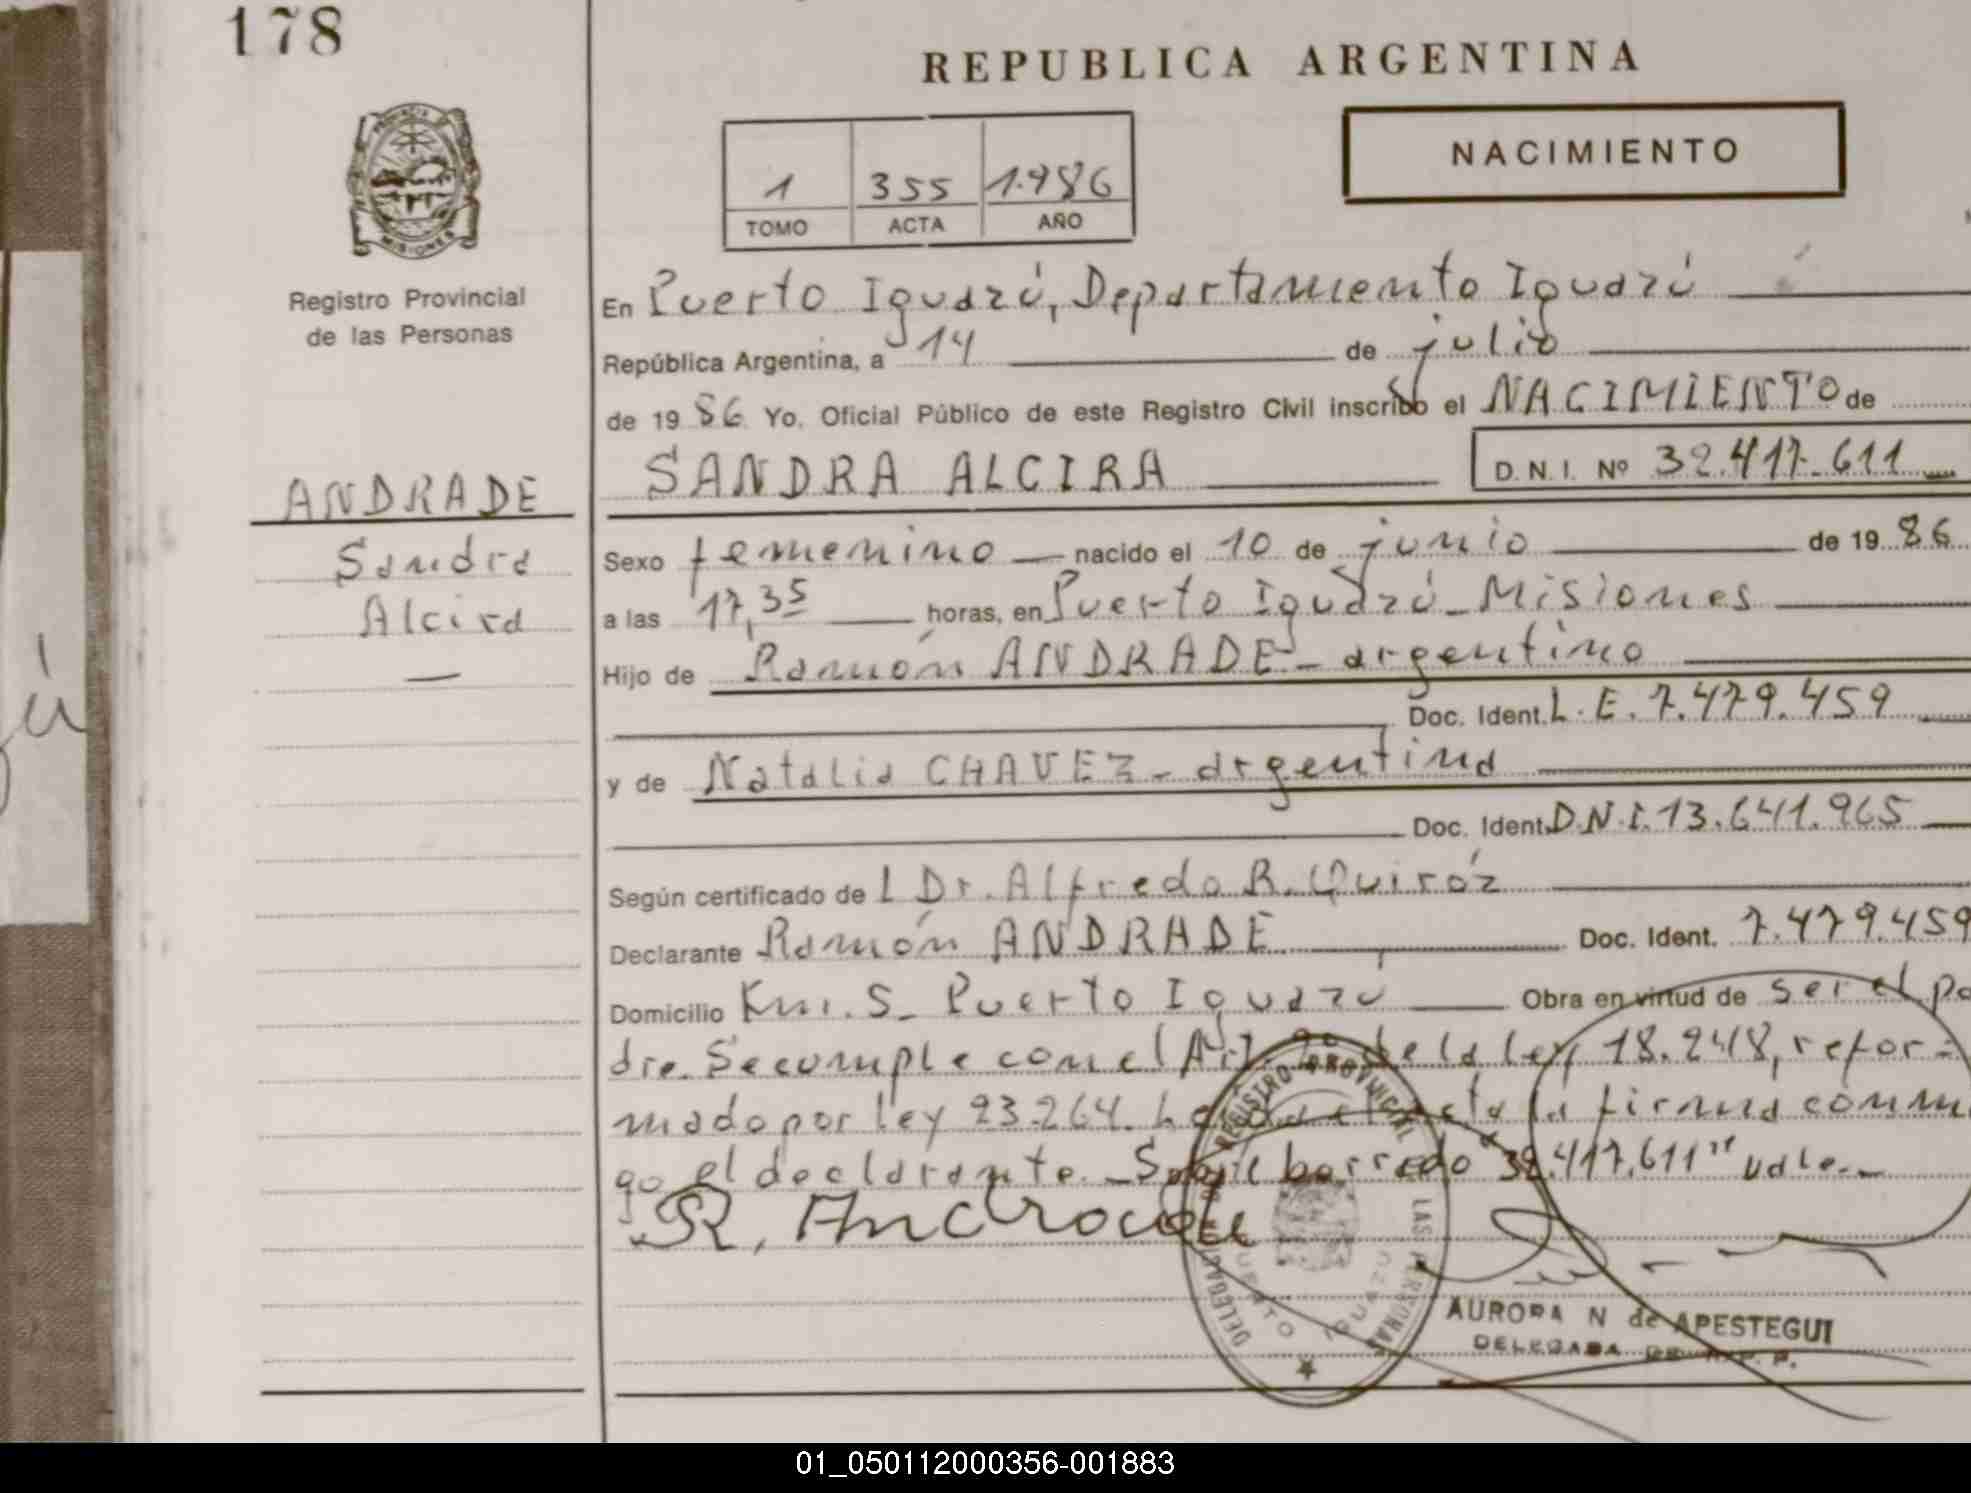 178
REPUBLICA ARGENTINA
NACIMIENTO
1 355 1.986
TOMO ACTA AÑO
PROVINCIA DE
MISIONES
Registro Provincial
de las Personas
En Puerto Iguazú, Departamento Iguazú
República Argentina, a 14 de julio
de 19 86 Yo, Oficial Público de este Registro Civil inscribo el NACIMIENTO de
SANDRA ALCIRA D. N. I. Nº 32.417.611
ANDRADE
Sandra
Alcira
Sexo femenino nacido el 10 de junio de 19 86
a las 17,35 horas, en Puerto Iguazú - Misiones
Hijo de Ramón ANDRADE - argentino
Doc. Ident. L.E. 7.479.459
y de Natalia CHAVEZ - argentina
Doc. Ident. D.N.I. 13.641.965
Según certificado de l Dr. Alfredo R. Quiróz
Declarante Ramón ANDRADE Doc. Ident. 7.479.459
Domicilio Km. 5 - Puerto Iguazú Obra en virtud de ser el pa
dre. Se cumple con el Art. 9º de la ley 18.248, refor-
mado por ley 23.264. Leída el acta la firma conmi
go el declarante. - Sobre borrado "32.417.611" vale. -
R. Andrade
REGISTRO PROVINCIAL DE LAS PERSONAS
DELEGACION
PUERTO IGUAZU
AURORA N de APESTEGUI
DELEGADA
01_050112000356-001883